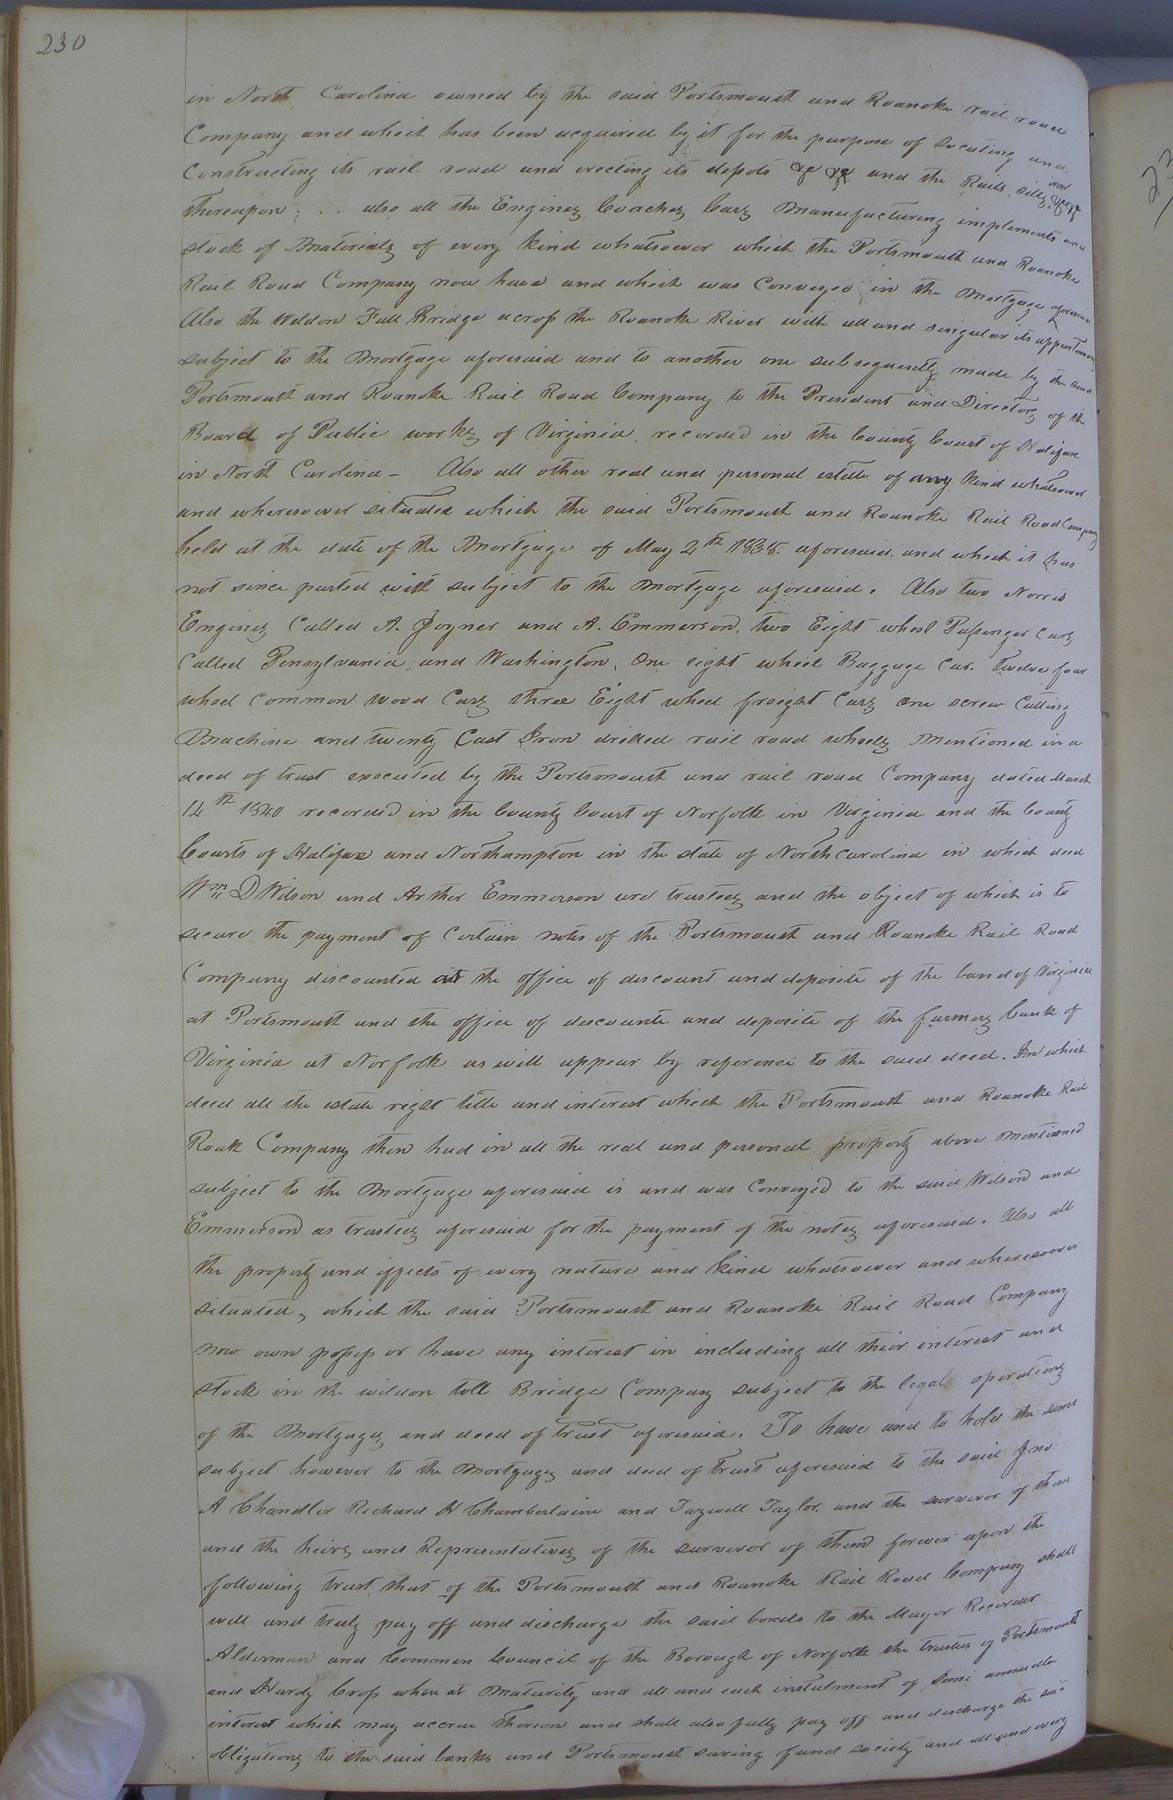 230
in North Carolina owned by the said Portsmouth and Roanoke rail road
Company and which has been acquired by it for the purpose of locating and
Constructing its rail road and erecting its depots &c &c and the Rails, sills, iron &c &c
thereupon; . . also all the Engines, Coaches, Cars Manufacturing implements and
stock of Materials of every kind whatsoever which the Portsmouth and Roanoke
Rail Road Company now have and which was Conveyed in the Mortgage aforesaid
Also the Weldon Fall Bridge across the Roanoke River with all and singular its appurtenances
subject to the Mortgage aforesaid and to another one subsequently made by the said
Portsmouth and Roanoke Rail Road Company to the President and Directors of the
Board of Public works of Virginia recorded in the County Court of Halifax
in North Carolina - Also all other real and personal estate of every kind whatsoever
and wheresoever situated which the said Portsmouth and Roanoke Rail Road Company
held at the date of the Mortgage of May 2th 1838. aforesaid and which it has
not since parted with subject to the Mortgage aforesaid. Also two Norris
Engines Called A. Joyner and A. Emmerson, two Eight wheel Passenger Cars
Called Pensylvania and Washington, One eight wheel Baggage Car. Twelve four
wheel Common wood Cars three Eight wheel freight Cars One screw Cutting
Machine and twenty Cast Iron drilled rail road wheels Mentioned in a
deed of trust executed by the Portsmouth and rail road Company dated March
14th 1840 recorded in the County Court of Norfolk in Virginia and the County
Courts of Halifax and Northampton in the state of North Carolina in which deed
Wm D Wilson and Arther Emmerson are trustees and the object of which is to
secure the payment of Certain notes of the Portsmouth and Roanoke Rail Road
Company discounted at the office of discount and deposite of the band of Virginia
at Portsmouth and the office of discounte and deposite of the farmers bank of
Virginia at Norfolk as will appear by reference to the said deed. In which
deed all the estate right title and interest which the Portsmouth and Roanoke Rail
Roak Company then had in all the real and personal property above Mentioned
subject to the Mortgage aforesaid is and was Conveyed to the said Wilson and
Emmerson as trustees aforesaid for the payment of the notes aforesaid. Also all
the property and effects of every nature and kind whatsoever and wheresoever
situated, which the said Portsmouth and Roanoke Rail Road Company
now own possess or have any interest in including all their interest and
stock in the wildon toll Bridge Company subject to the legal operations
of the Mortgages and deed of trust aforesaid. To have and to hold the same
subject however to the Mortgages and deed of trust aforesaid to the said Jno
A Chandler Richard H Chamberlaine and Tazwell Taylor. and the survivor of them
and the heirs and Representatives of the survivor of them forever upon the
following trust, that if the Portsmouth and Roanoke Rail Road Company shall
well and truly pay off and discharge the said bonds to the Mayor Recorder
Alderman and Common Council of the Borough of Norfolk the trustees of Portsmouth
and Hardy Cross when at Maturity and all and each instalment of Semi annualle
interest which may accrue thereon and shall also fully pay off and discharge the said
obligations to the said banks and Portsmouth saving fund society and all and every